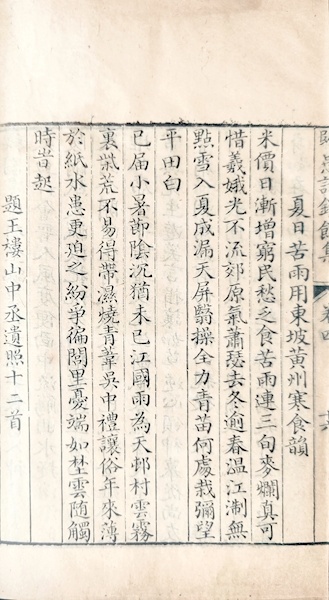 夏日苦雨用東坡黃州寒食韻
米價日漸增窮民愁乏食苦雨連三旬麥爛真可
惜羲娥光不流郊原氣蕭瑟去冬逾春溫江淛無
點雪入夏成漏天屏翳操全力青苗何處栽彌望
平田白
已届小暑節陰沉猶未已江國雨為天邨村雲霧
裏柴荒不易得帶濕燒青葦吳中禮讓俗年來薄
於紙水患更迫之紛爭徧閭里憂端如埜雲隨觸
時時起
題王樓山中丞遺照十二首